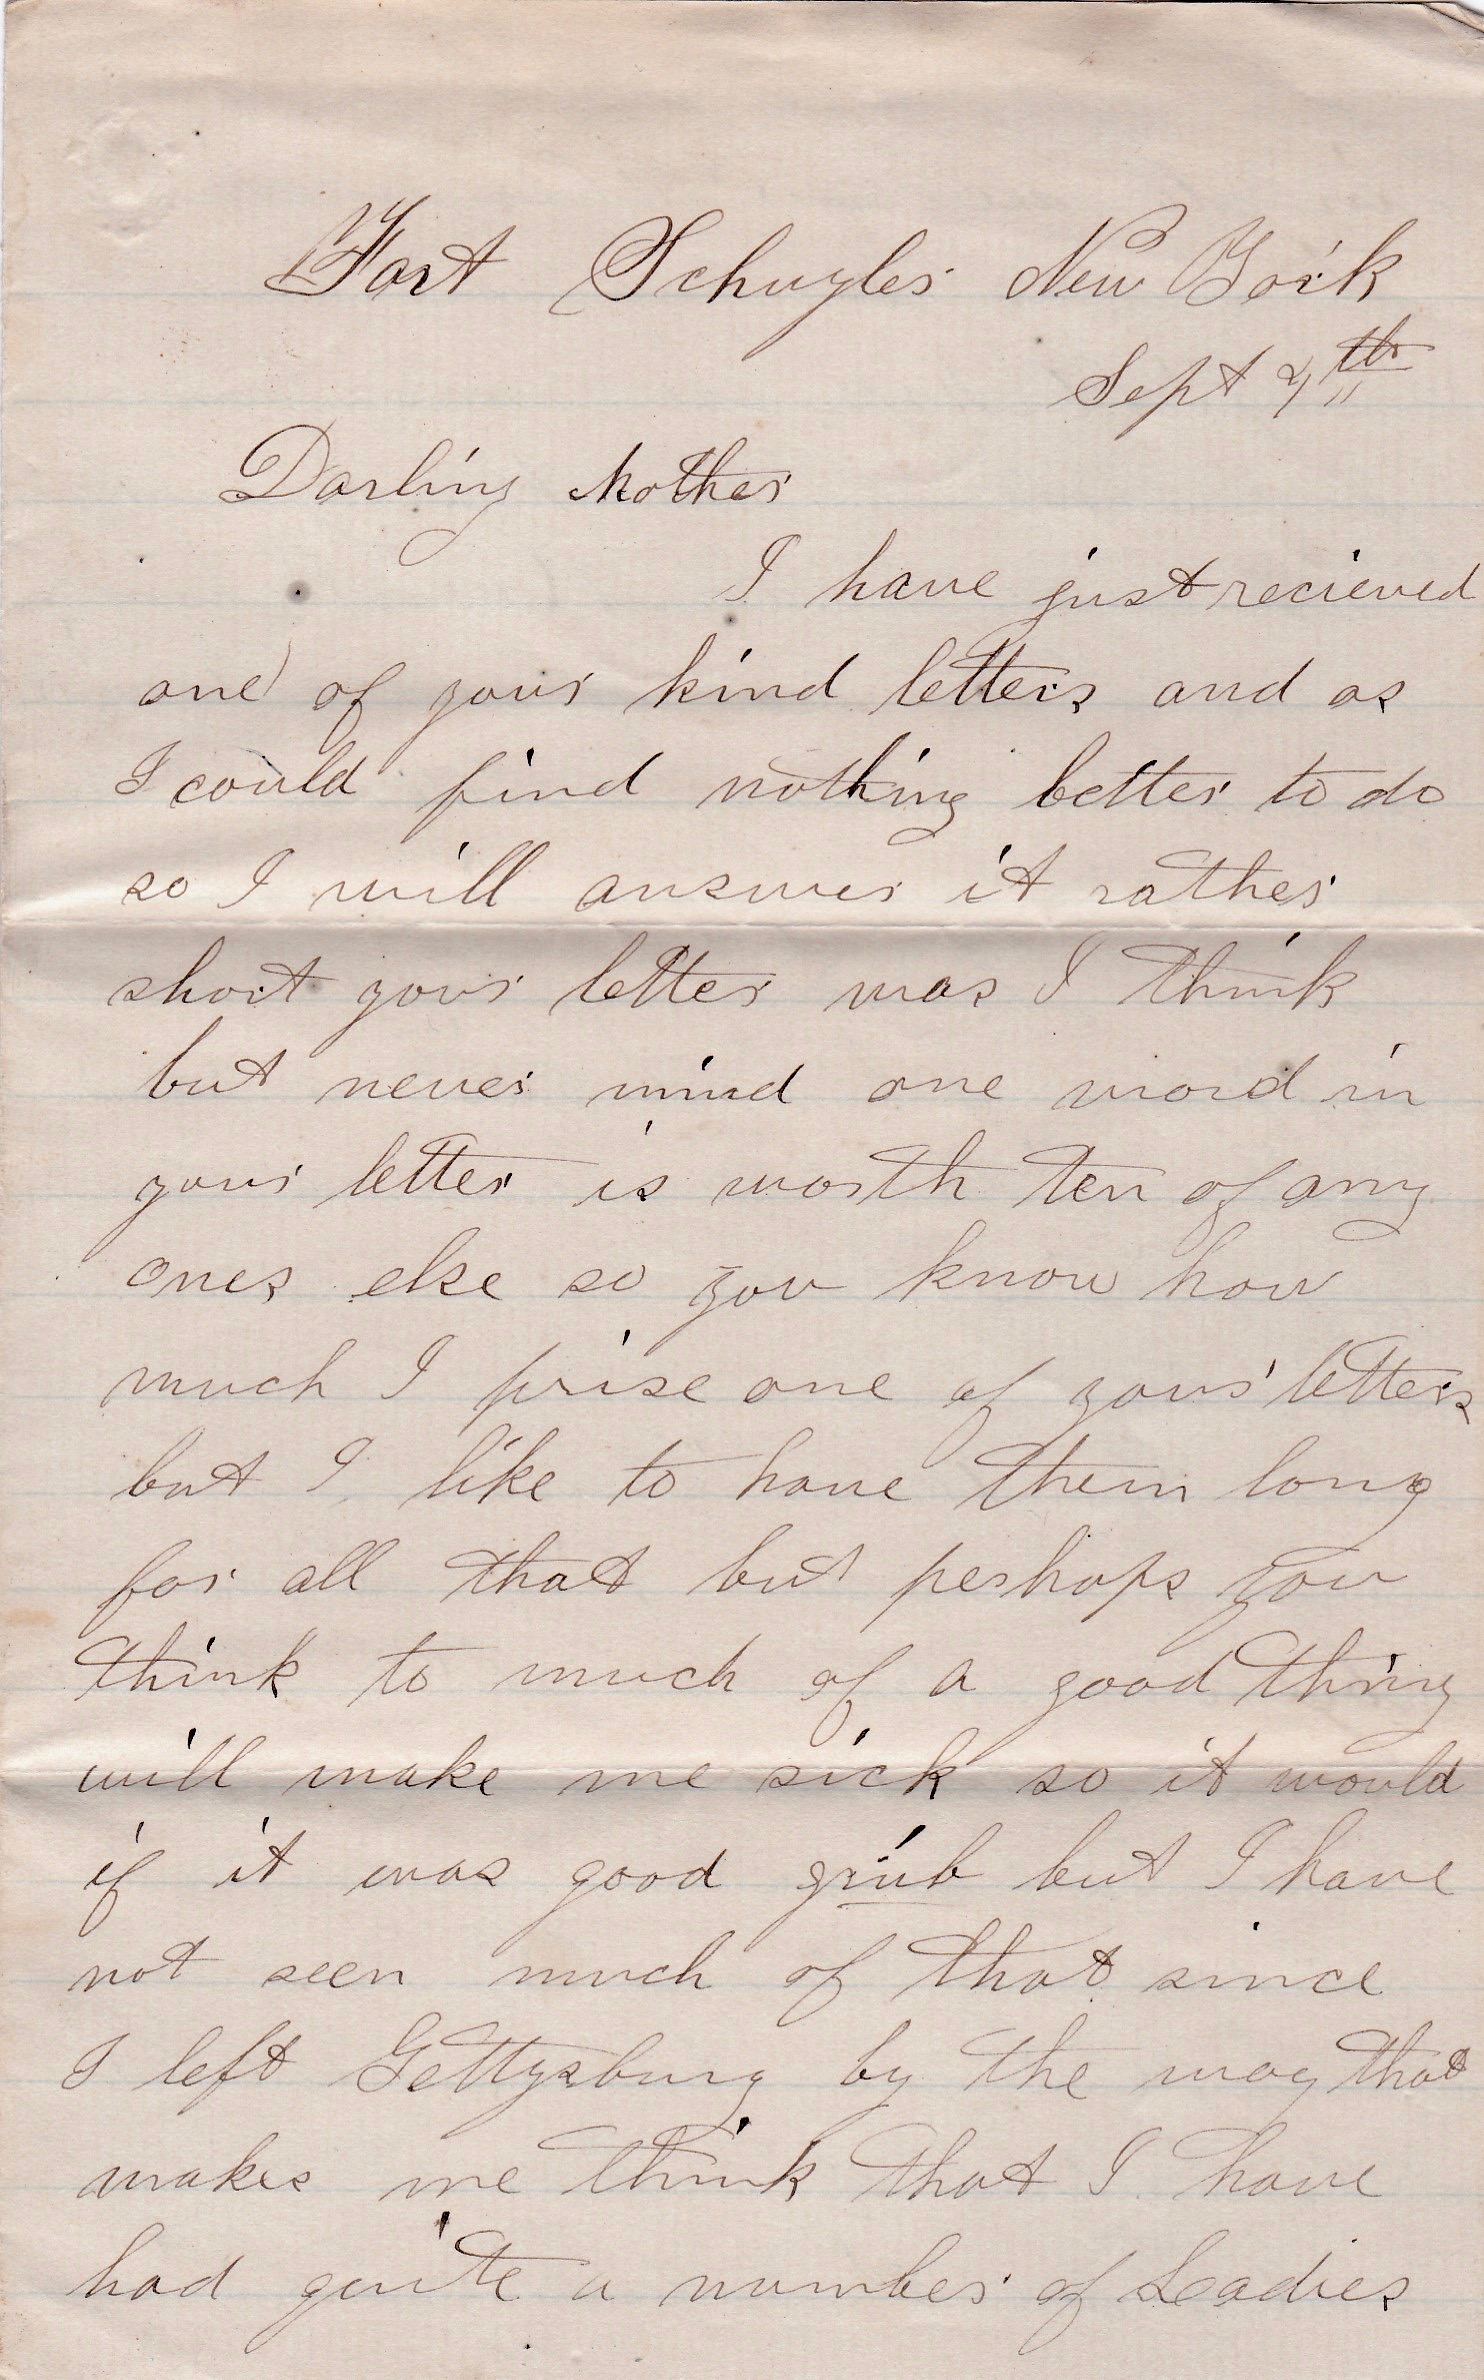 Fort Schuyler New York
Sept 4th
Darling Mother
I have just recieved
one of your kind letters and as
I could find nothing better to do
so I will answer it rather
short your letter was I think
but never mind one word in
your letter is worth ten of any
ones else so you know how
much I prise one of your letters
but I like to have them long
for all that but perhaps you
think to much of a good thing
will make me sick so it would
if it was good grub but I have
not seen much of that since
I left Gettysburg by the way that
makes me think that I have
had quite a number of Ladies